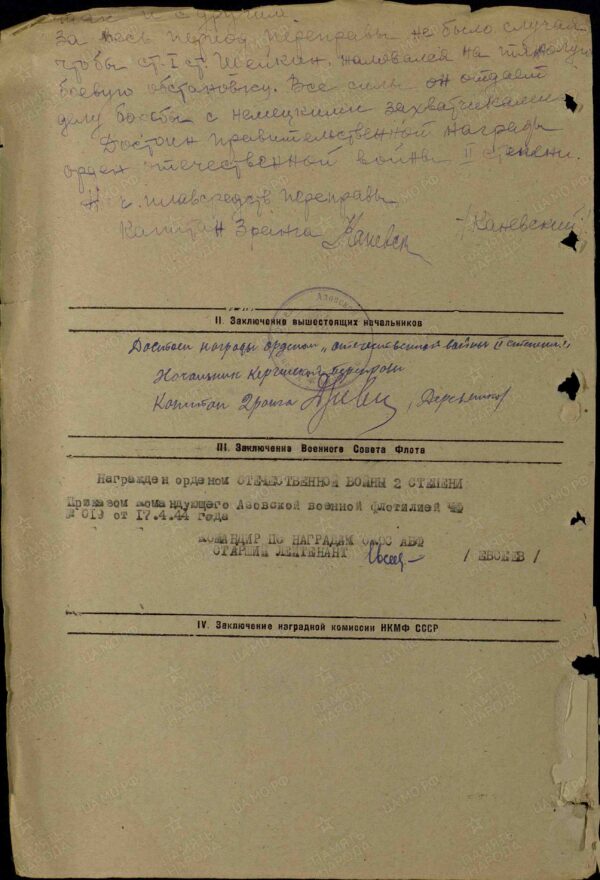 и с другим.
За весь период переправы не было случая
чтобы ст. I ст. жаловался на тяжелую
боевую обстановку. Все силы он отдает
делу борьбы с немецкими захватчиками
Достоин правительственной награды
орден отечественной войны II степени.
плавсредств переправы
Капитан 3 ранга /Каневский/
II. Заключение вышестоящих начальников
Достоин награды орденом „отечественной войны II степени"
Начальник Керченской переправы
Капитан 2 ранга
III. Заключение Военного Совета Флота
Награжден орденом ОТЕЧЕСТВЕННОЙ ВОЙНЫ 2 СТЕПЕНИ
Приказом командующего Азовской военной флотилией ЧФ
от 17.4.44 года
КОМАНДИР ПО НАГРАДАМ АВФ
СТАРШИЙ ЛЕЙТЕНАНТ / ЕВСЕЕВ /
IV. Заключение наградной комиссии НКМФ СССР
ПАМЯТЬ НАРОДА
ЦАМО.РФ